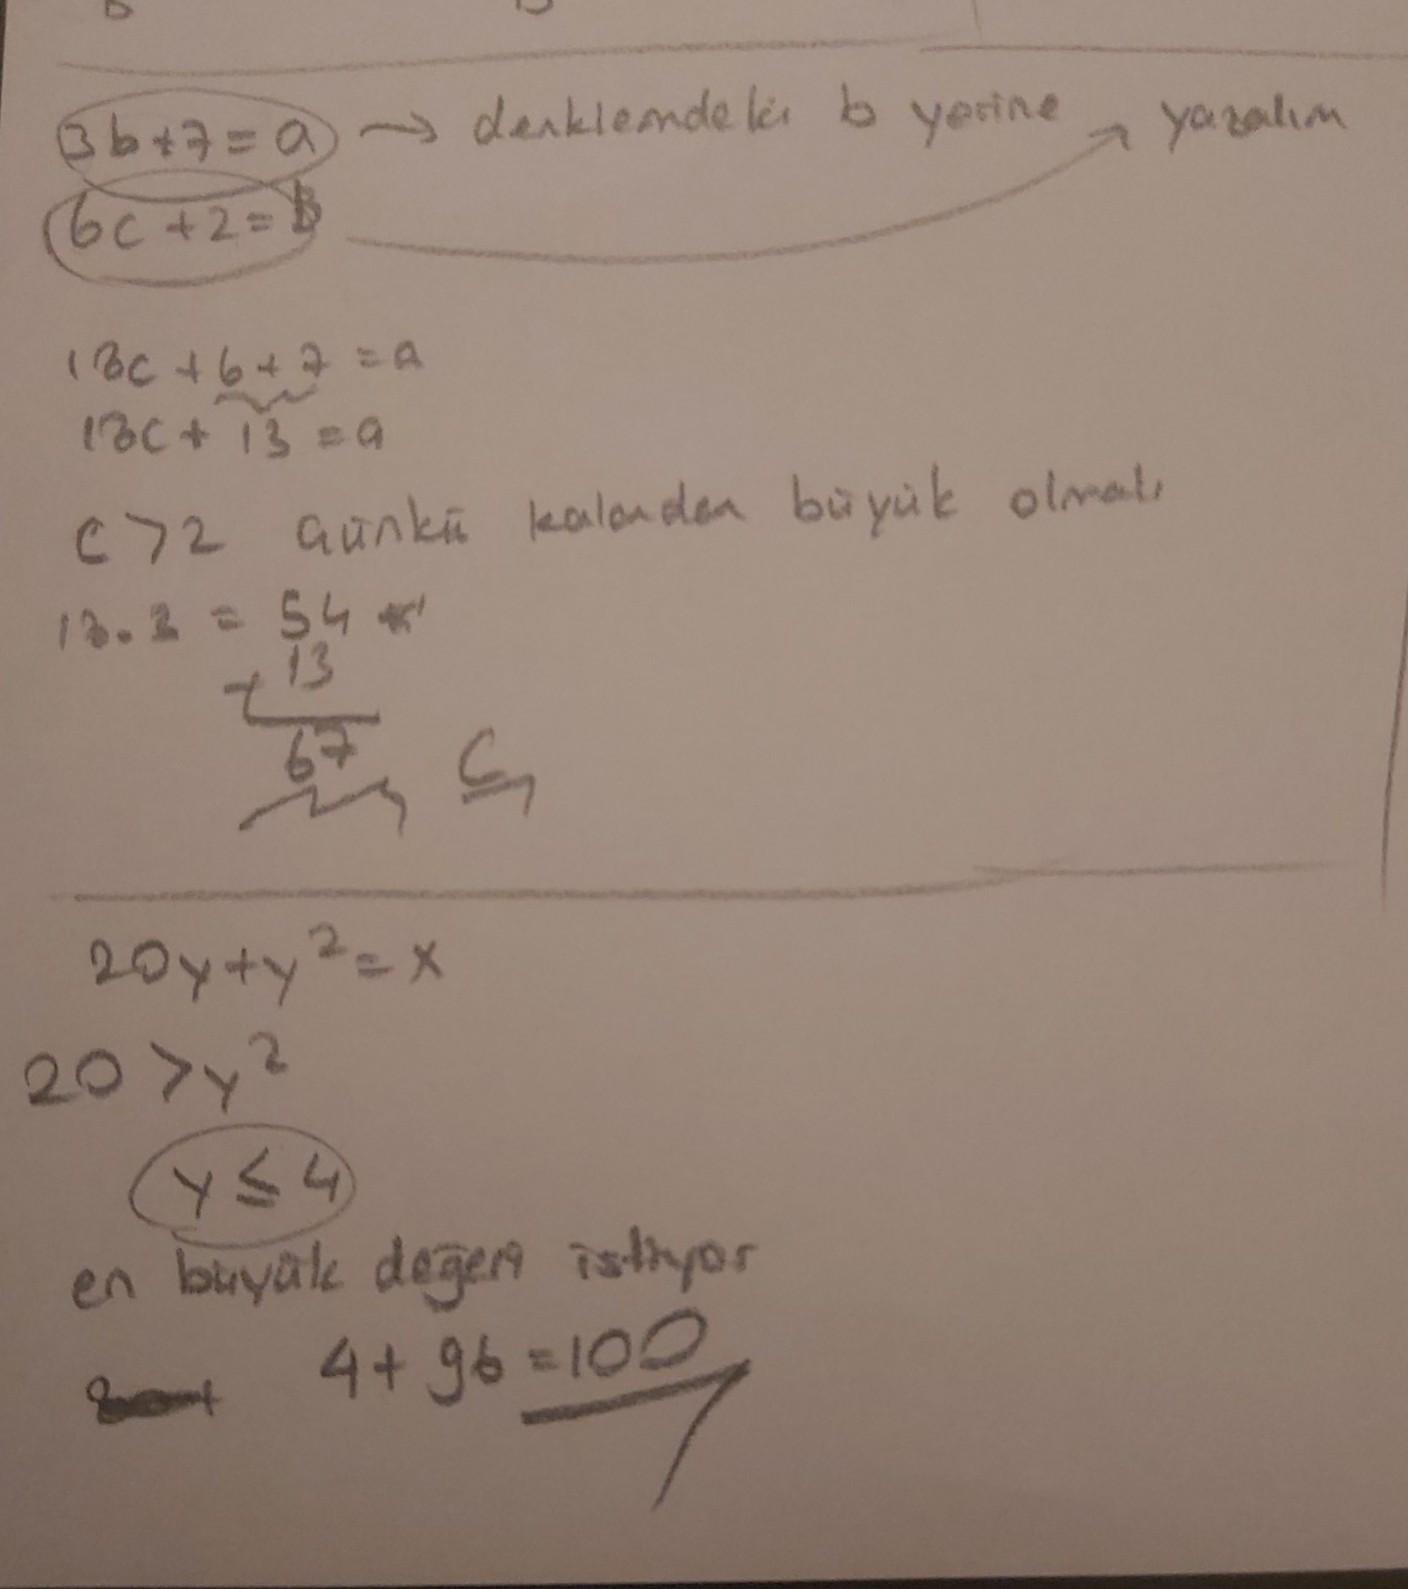 3b+7=a → denklemdeki b yerine yazalım
6c+2=b
18c+6+7=a
18c+13=a
c>2 Günkü kalandan büyük olmalı
18.3=54
+13
67 C
20y+y²=x
20>y²
y≤4
en büyük değeri istiyor
4+96=100